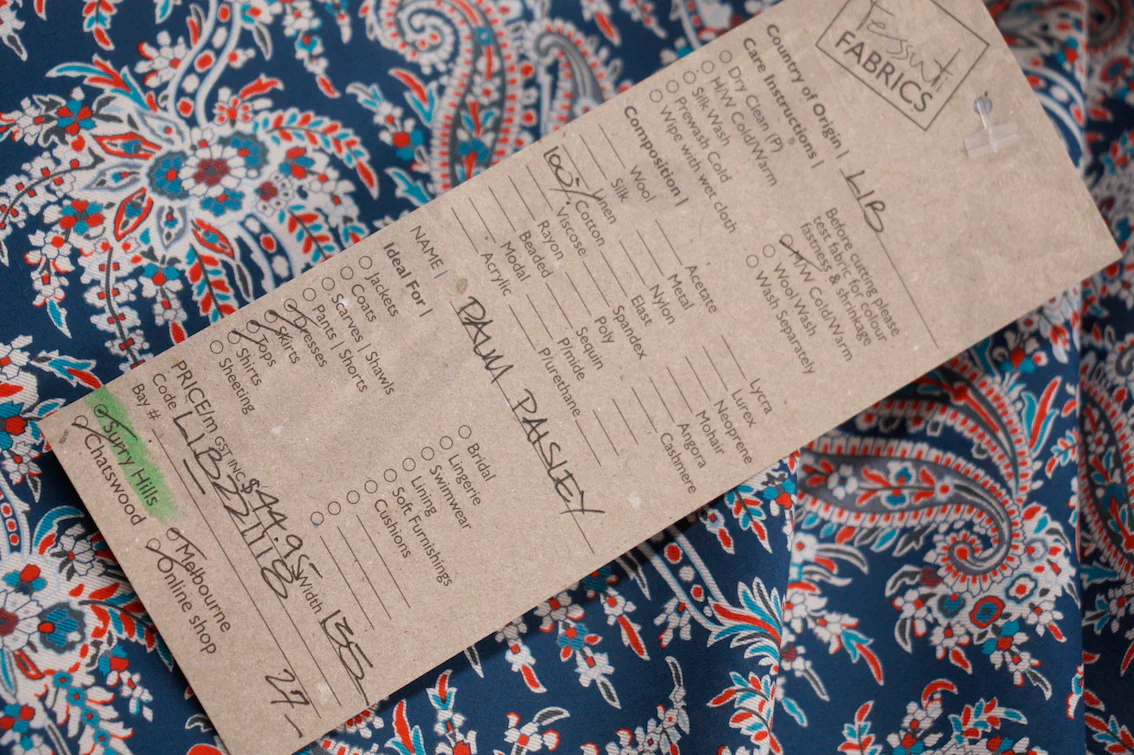 Tessuti
FABRICS
Country of Origin | LIB
Care Instructions |
Dry Clean (P)
H/W Cold/Warm
Silk Wash
Prewash Cold
Wipe with wet cloth
Before cutting please
test fabric for colour
fastness & shrinkage
H/W Cold/Warm
Wool Wash
Wash Separately
Composition |
Wool
Silk
Linen
100% Cotton
Viscose
Rayon
Beaded
Modal
Acrylic
Acetate
Metal
Nylon
East
Spandex
Poly
Sequin
P/mide
P/urethane
Lycra
Lurex
Neoprene
Mohair
Angora
Cashmere
NAME | PALM PAISLEY
Ideal For |
Jackets
Coats
Scarves | Shawls
Pants | Shorts
Dresses
Skirts
Tops
Shirts
Sheeting
Bridal
Lingerie
Swimwear
Lining
Soft Furnishings
Cushions
PRICE/m GST INC $44.95 Width 135
Code LIB221118
Bay # 27
Surry Hills
Chatswood
Melbourne
Online shop